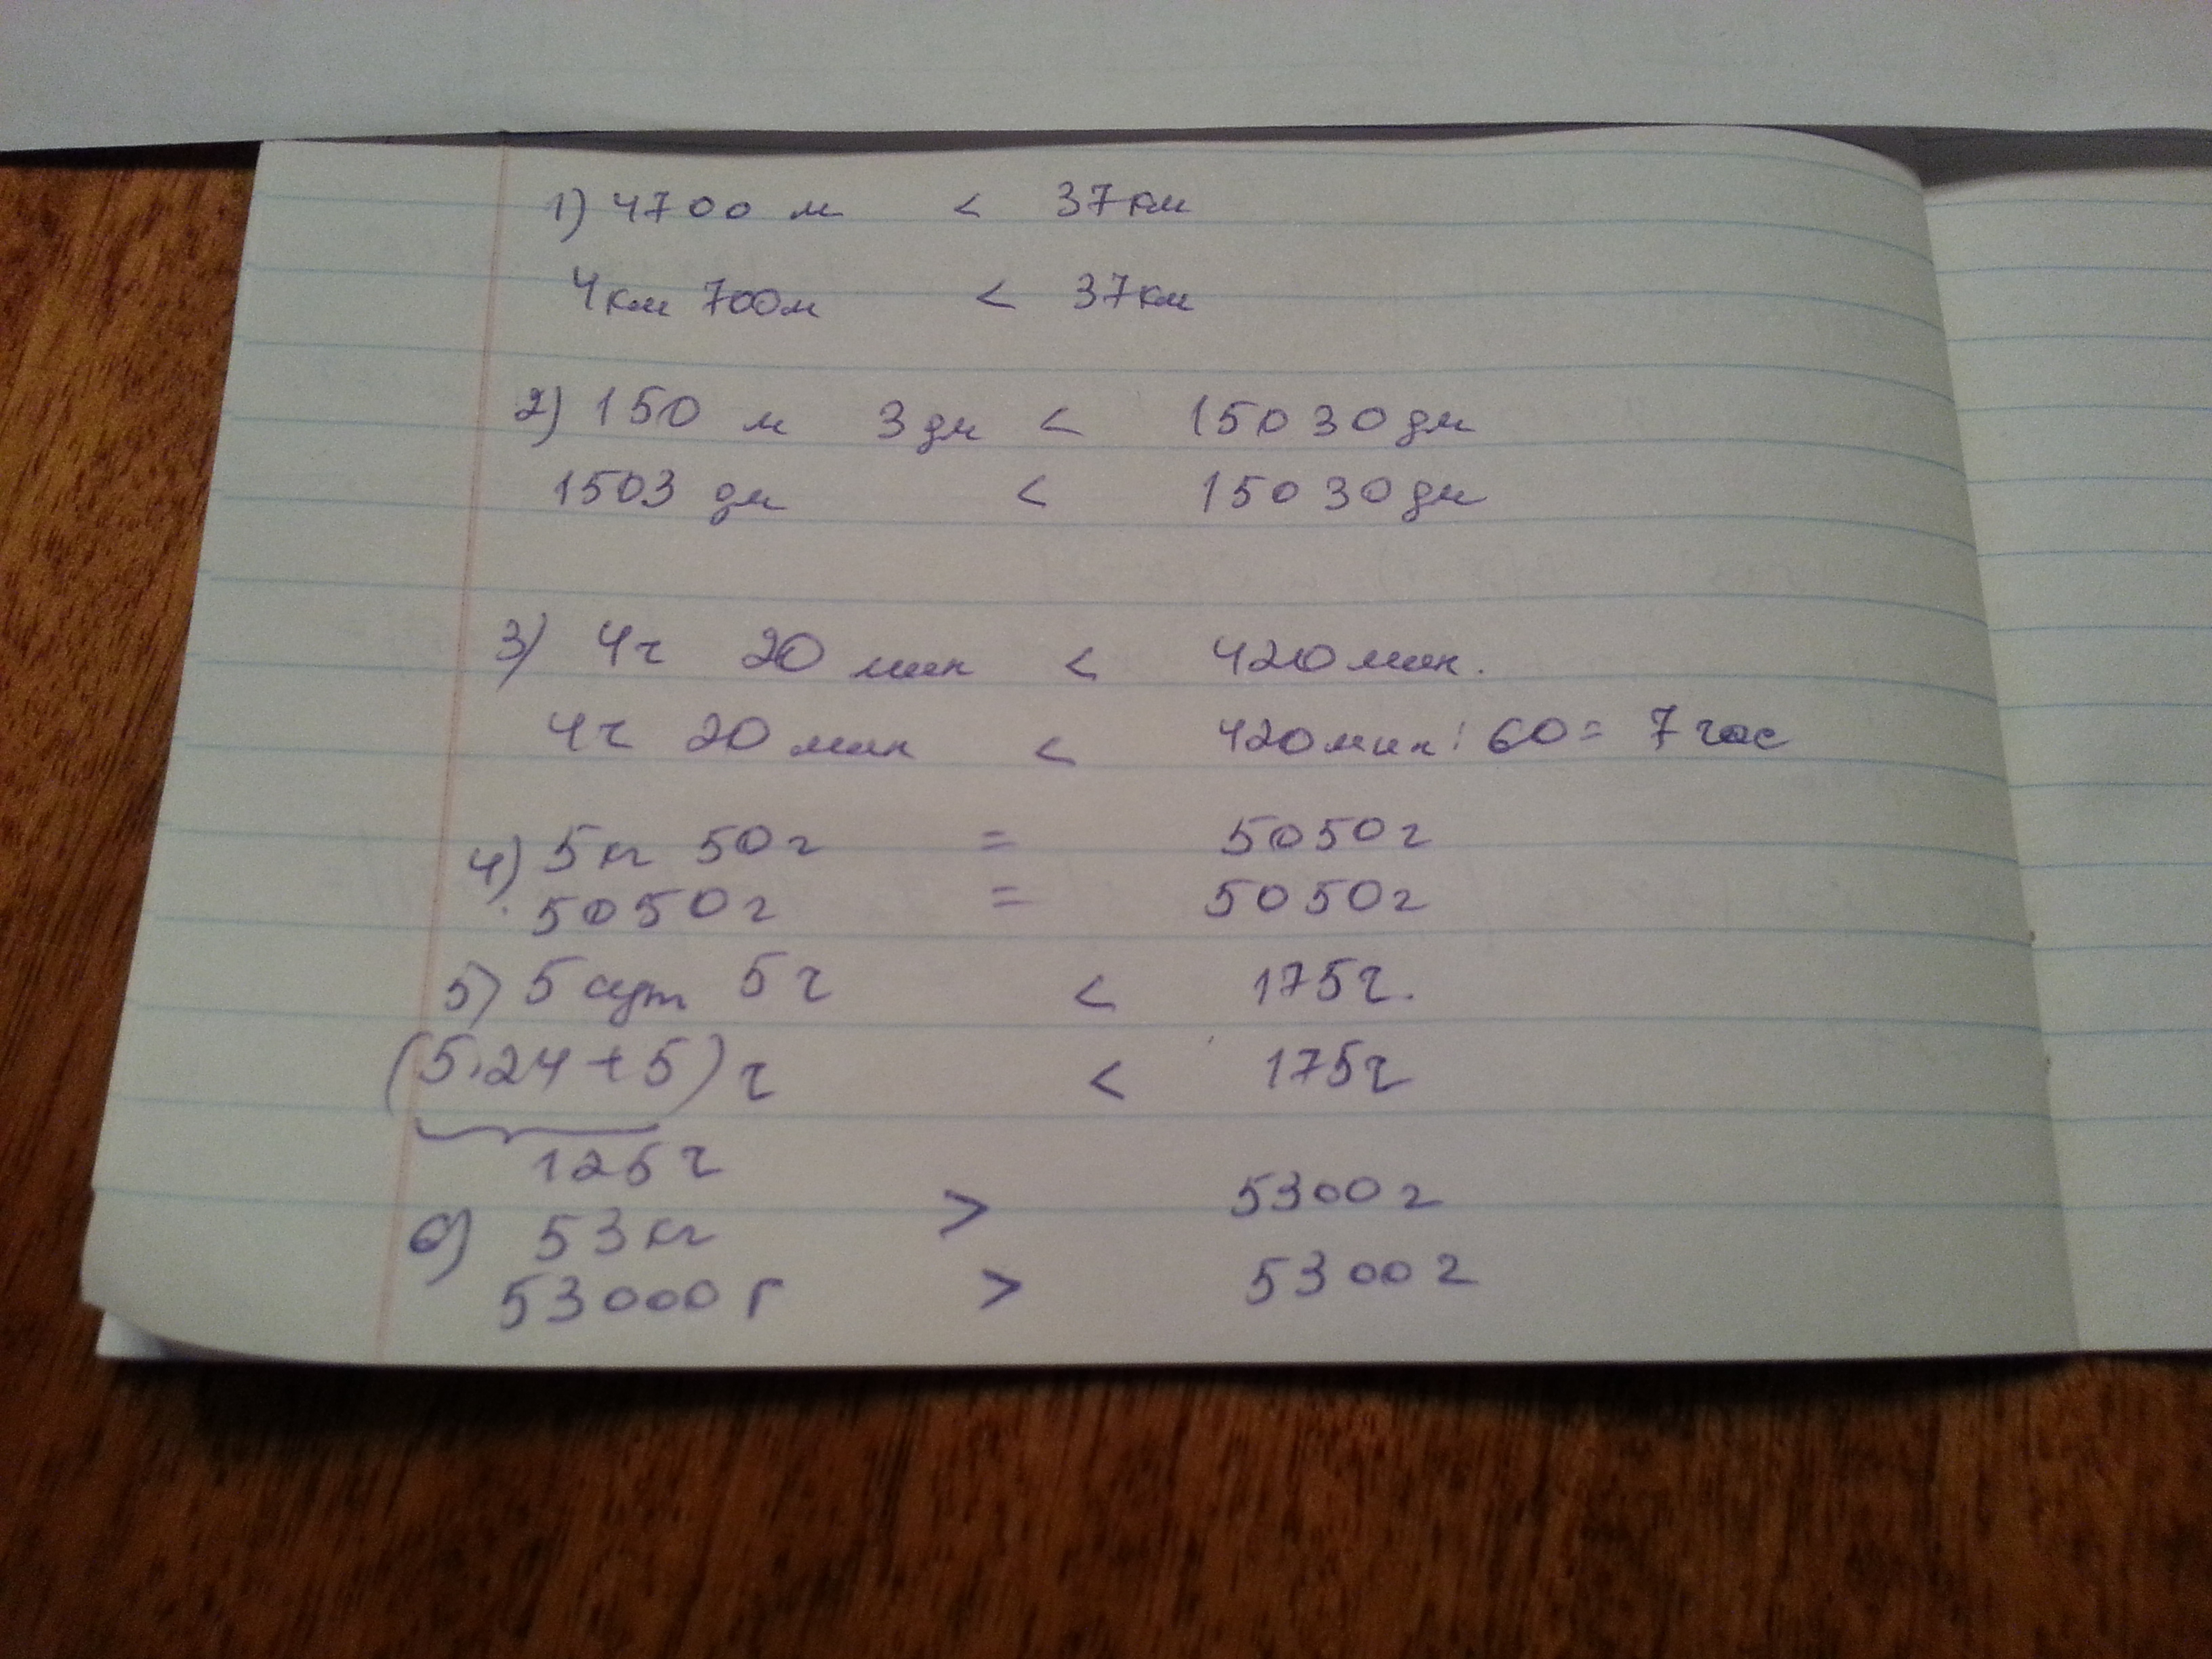 1) 4700 м < 37км
4км 700м < 37км
2) 150 м 3дм < 15030дм
1503 дм < 15030дм
3) 4ч 20 мин < 420мин.
4ч 20 мин < 420мин : 60 = 7 час
4) 5кг 50г = 5050г
5050г = 5050г
5) 5 сут 5ч < 175ч.
(5·24+5)ч < 175ч
125ч
6) 53кг > 5300г
53000г > 5300г